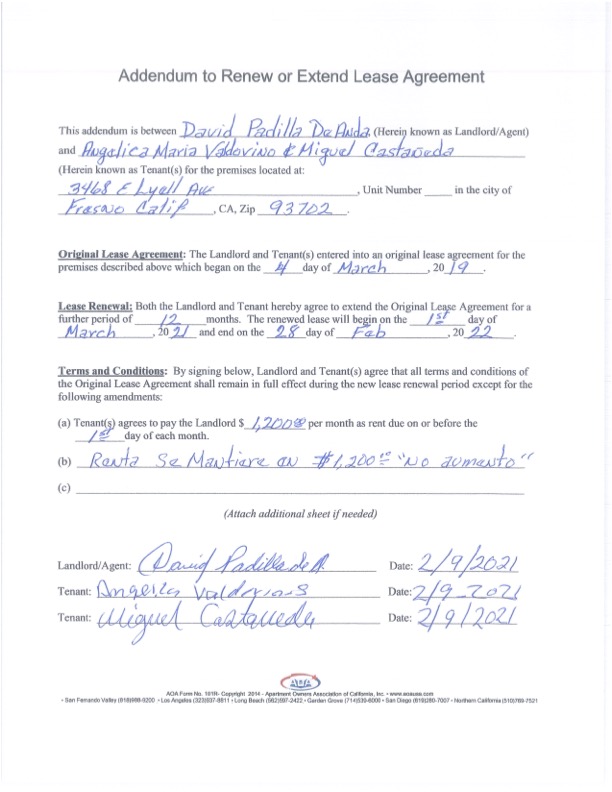 Addendum to Renew or Extend Lease Agreement
This addendum is between David Padilla De Anda, (Herein known as Landlord/Agent)
and Angelica Maria Valdovino & Miguel Castaneda
(Herein known as Tenant(s) for the premises located at:
3468 E Lyell Ave, Unit Number ____ in the city of
Fresno Calif, CA, Zip 93702.
Original Lease Agreement: The Landlord and Tenant(s) entered into an original lease agreement for the
premises described above which began on the 4 day of March, 2019.
Lease Renewal: Both the Landlord and Tenant hereby agree to extend the Original Lease Agreement for a
further period of 12 months. The renewed lease will begin on the 1st day of
March, 2021 and end on the 28 day of Feb, 2022.
Terms and Conditions: By signing below, Landlord and Tenant(s) agree that all terms and conditions of
the Original Lease Agreement shall remain in full effect during the new lease renewal period except for the
following amendments:
(a) Tenant(s) agrees to pay the Landlord $ 1,200.00 per month as rent due on or before the
1st day of each month.
(b) Renta Se Mantiene en $1,200.00 "No aumento"
(c)
(Attach additional sheet if needed)
Landlord/Agent: David Padilla de A. Date: 2/9/2021
Tenant: Angelica Valdovinos Date: 2/9 2021
Tenant: Miguel Castaneda Date: 2/9/2021
AOA Form No. 101R- Copyright 2014 - Apartment Owners Association of California, Inc. • www.aoausa.com
• San Fernando Valley (818)988-9200 • Los Angeles (323)937-8811 • Long Beach (562)597-2422 • Garden Grove (714)539-6000 • San Diego (619)280-7007 • Northern California (510)769-7521